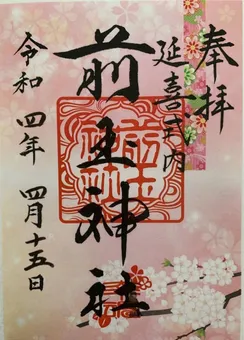 奉拝
延喜式内
前玉神社
令和四年 四月十五日